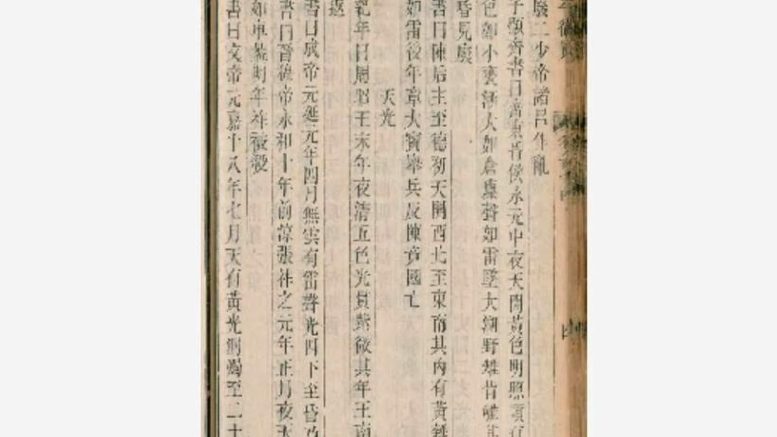 廢二少帝諸呂作亂
子顯齊書曰齊東昏侯永元中夜天開黃色明照須有
色如小甕漸大如倉廩聲如雷墜大湖野雉皆雊其
昏見廢
書曰陳后主至德初天開西北至東南其內有黃雜
如雷後年章大寶舉兵反陳竟國亡
天光
紀年曰周昭王末年夜清五色光貫紫微其年王南
返
書曰成帝元延元年四月無雲有雷聲光四下至昏乃
書曰晉穆帝永和十年前涼張祚之元年正月夜天
如車蓋明年祚被殺
書曰文帝元嘉十八年七月天有黃光洞燭至二十